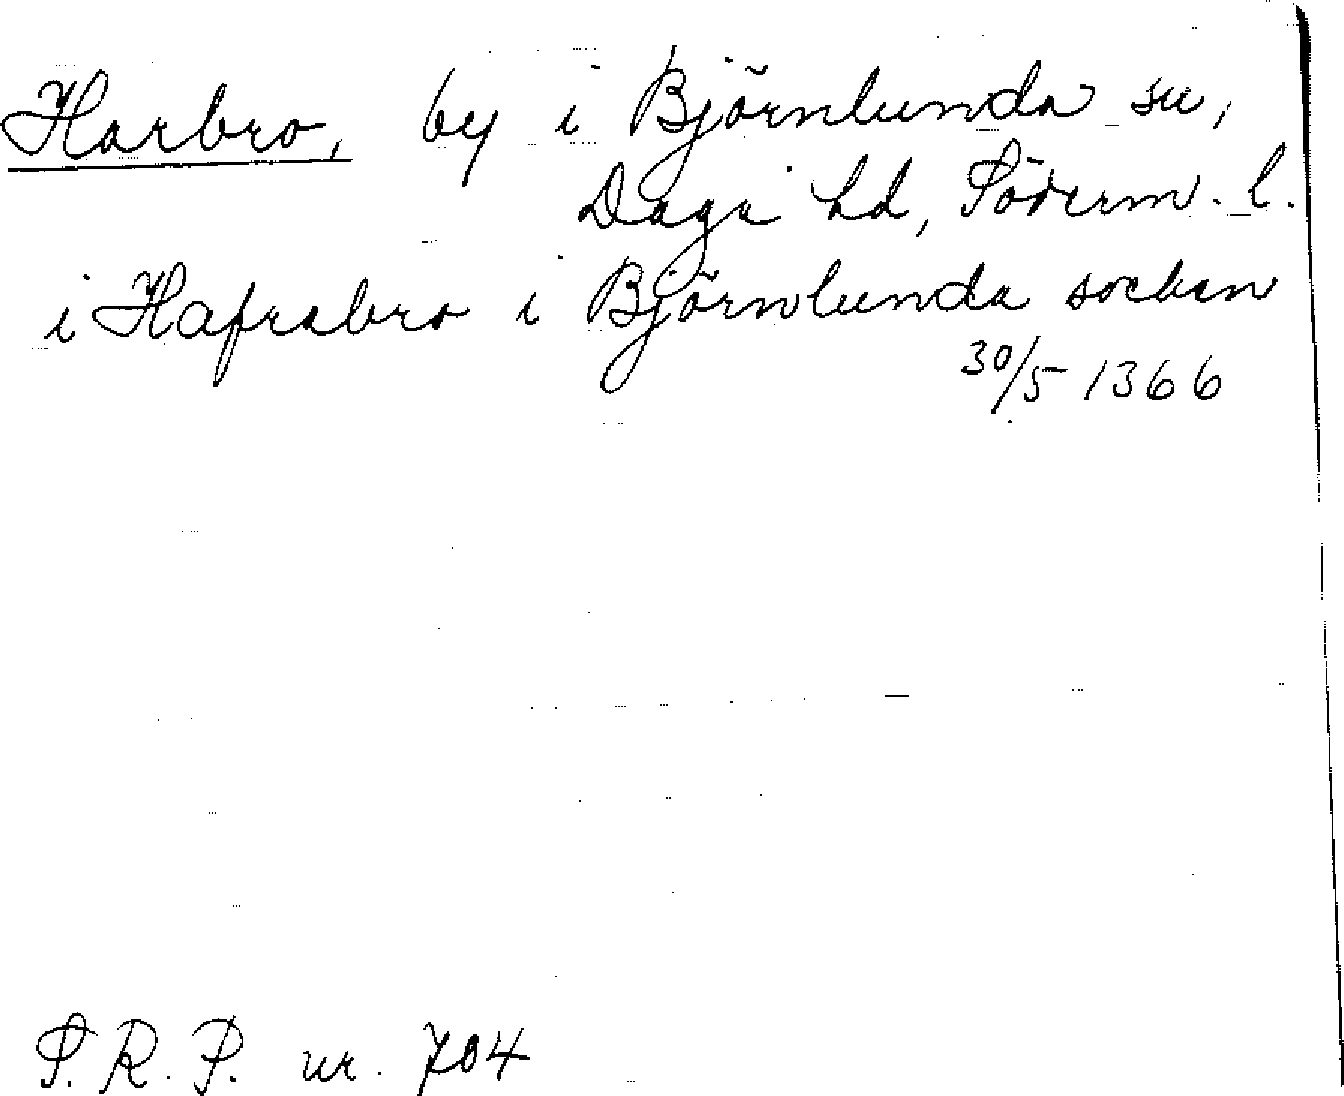 Harbro, by i Björnlunda sn,
Daga hd, Söderm. l.
i Hafrabro i Björnlunda socken
30/5 1366
S. R. P. nr. 704